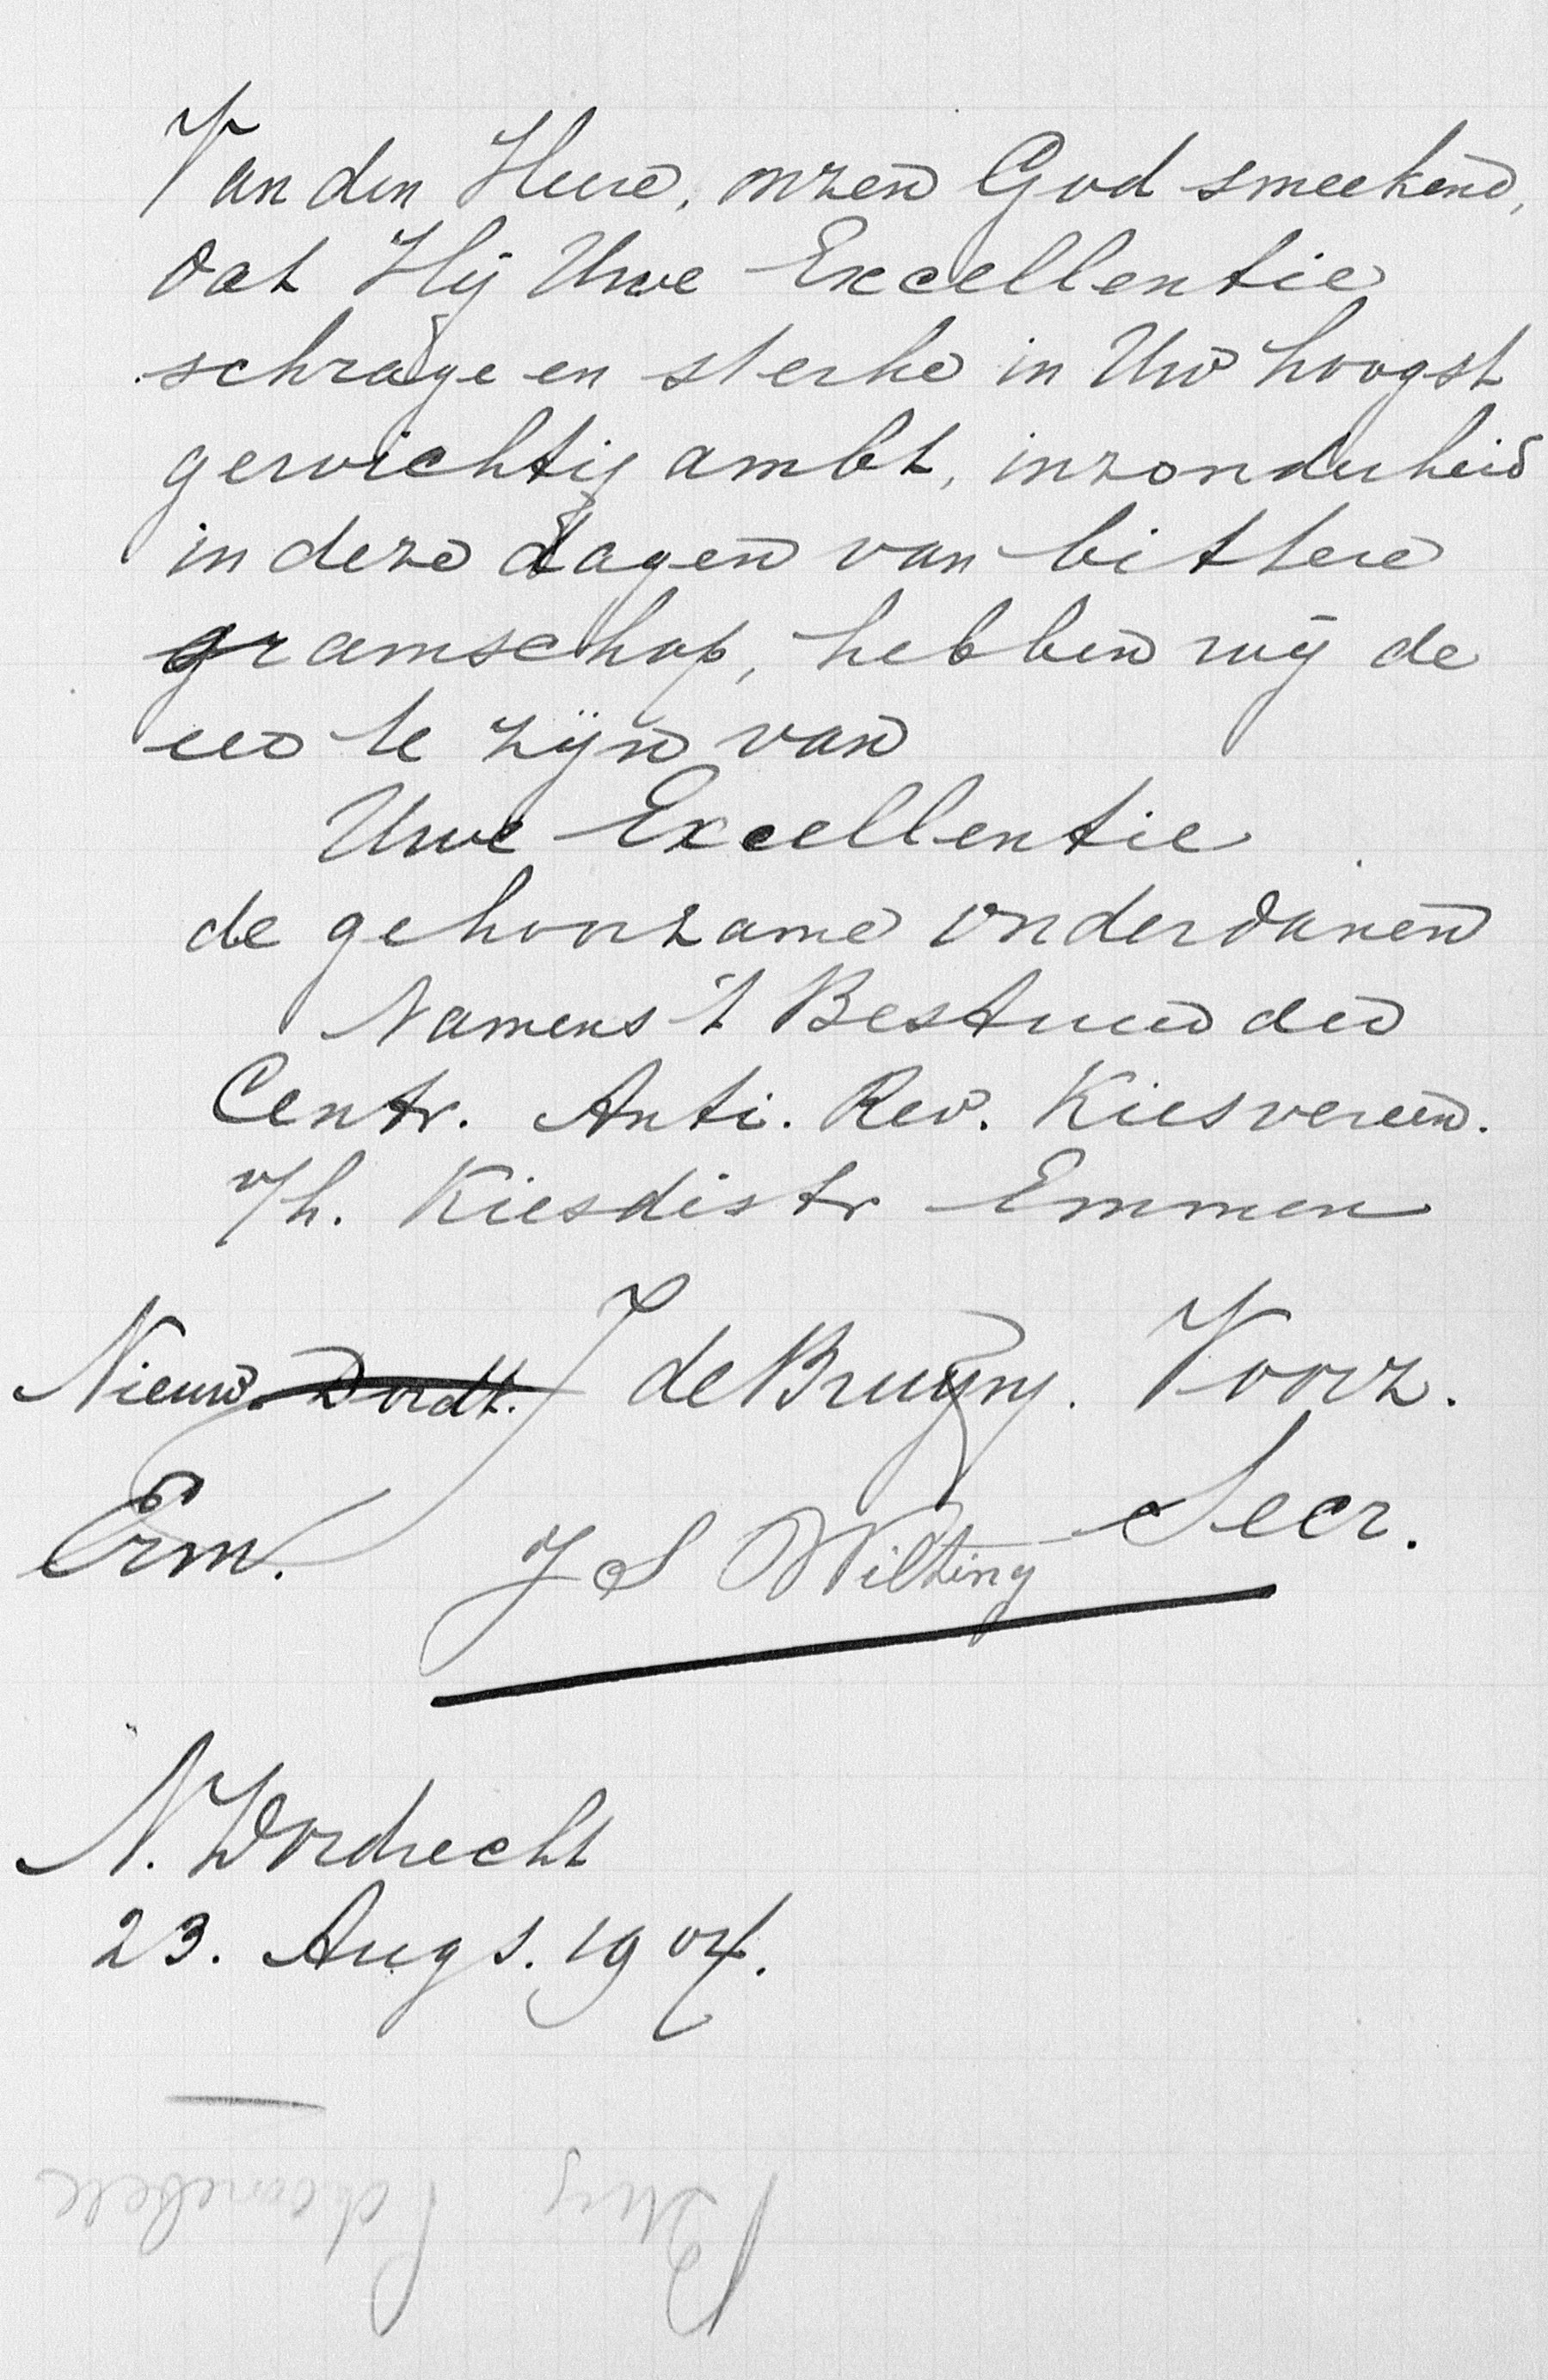 Van den Heere, onzen God smeekend,
dat Hij Uwe Excellentie
schrage en sterke in Uw hoogst
gewichtig ambt, inzonderheid
in deze dagen van bittere
gramschap, hebben wij de
eer te zijn van
Uwe Excellentie
de gehoorzame onderdanen
Namens 't Bestuur der
Centr. Anti. Rev. Kiesvereen.
v/h. Kiesdistr Emmen
Nieuw. Dordt. J de Bruyny. Voorz.
Erm. J S Wilting Secr.
N. Dordrecht
23. Augs. 1904.